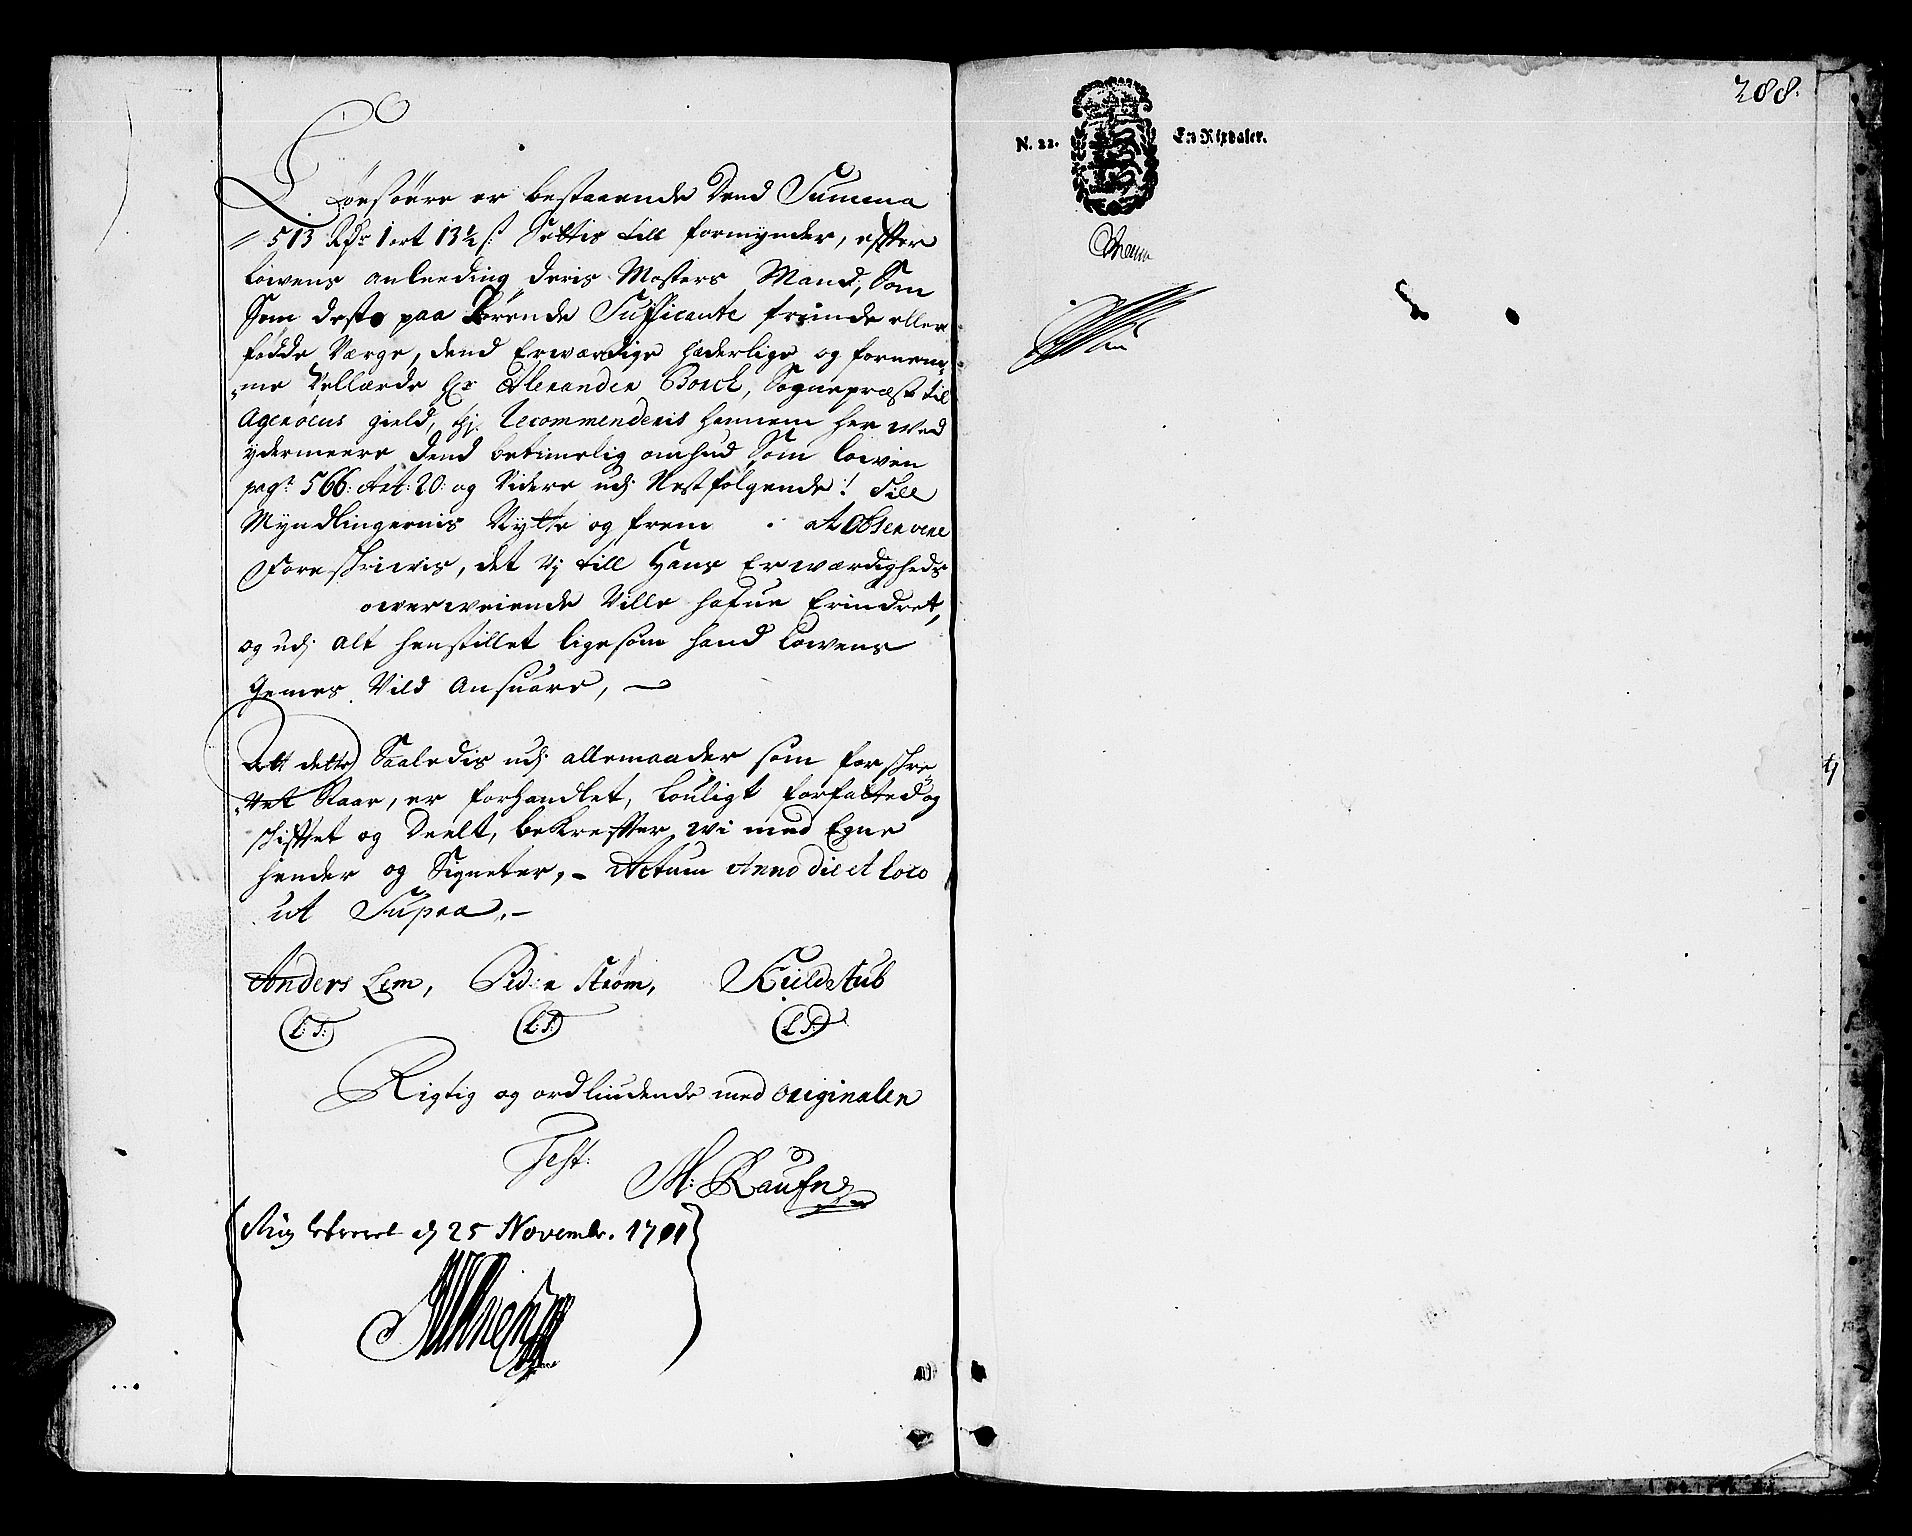 Løesøere er bestaaende Dend Summa
513 Rdr 1 ort 13½ s: Settis till formynder, effter
Lowens anleeding deris Mosters Mand, Som
Som deste paa Børende Sufficante frinde eller
fødde Værge, dend Erwærdige hæderlige og fornem-
me Vellærde Hr Alexander Borch, Sognepræst til
Agerøens gield, hj. Recommenderis hannem her wed
ydermeere dend betimelig omhud Som Lowen
pag: 566: Art: 20: og Videre udj Nestfølgende! Till
Myndlingernis Nytte og frem At Observere
Foreskriwis, det Vj till Hans Erwærdigheds
owerweiende Ville hafue Erindret,
og udj alt henstillet ligesom hand Lowens
Gemes Vild Ansuare,
Att dette Saaledis udj allemaader som forskre-
vet Staar, er forhandlet, Louligt forfatted og
skifftet og Deelt, bekreffter wi med Egne
hender og Signeter, Actum Anno die et loco
ut Supra.
Anders Lem, Ped: Strøm, Kieldstub
(L:S:) (L:S:) (L:S:)
Rigtig og ordliudende med originalen
Test:
M: Raufn
d 25 Novembr. 1701
288.
N. 22. En Rixdaler.